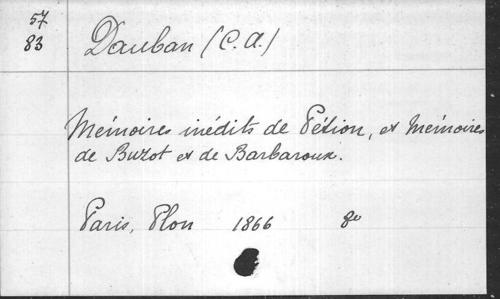 57
83
Dauban (C.A.)
Mémoires inédits de Pétion, et Mémoires
de Buzot et de Barbaroux.
Paris, Plon 1866 8º